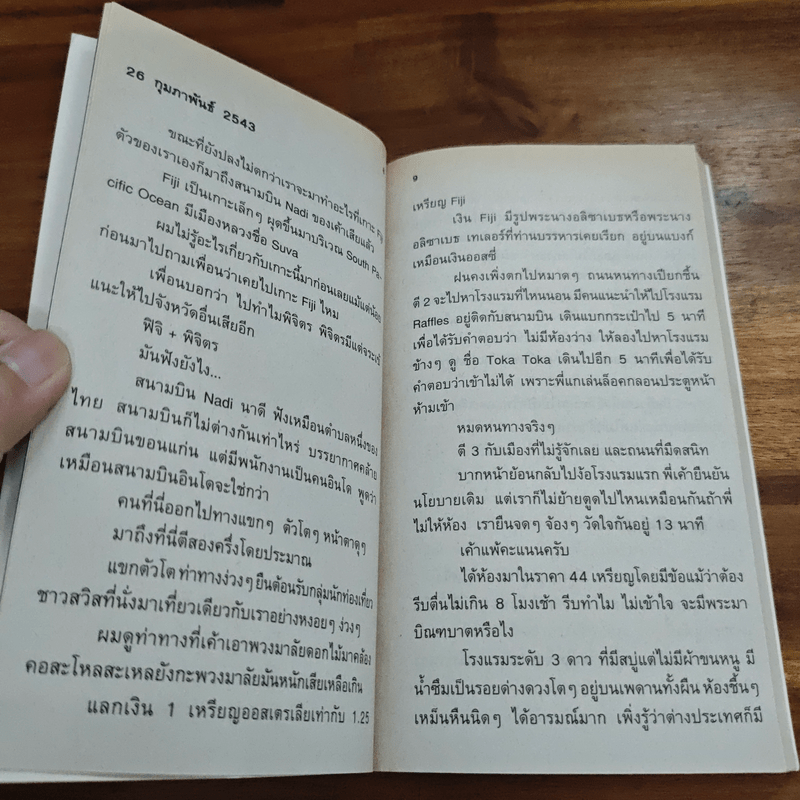 26 กุมภาพันธ์ 2543
ขณะที่ยังปลงไม่ตกว่าเราจะมาทำอะไรที่เกาะ Fiji
ตัวของเราเองก็มาถึงสนามบิน Nadi ของเค้าเสียแล้ว
Fiji เป็นเกาะเล็กๆ ผุดขึ้นมาบริเวณ South Pa-
cific Ocean มีเมืองหลวงชื่อ Suva
ผมไม่รู้อะไรเกี่ยวกับเกาะนี้มาก่อนเลยแม้แต่น้อย
ก่อนมาไปถามเพื่อนว่าเคยไปเกาะ Fiji ไหม
เพื่อนบอกว่า ไปทำไมพิจิตร พิจิตรมีแต่จระเข้
แนะให้ไปจังหวัดอื่นเสียอีก
ฟิจิ + พิจิตร
มันฟังยังไง...
สนามบิน Nadi นาดี ฟังเหมือนตำบลหนึ่งของ
ไทย สนามบินก็ไม่ต่างกันเท่าไหร่ บรรยากาศคล้าย
สนามบินขอนแก่น แต่มีพนักงานเป็นคนอินโด พูดว่า
เหมือนสนามบินอินโดจะใช่กว่า
คนที่นี่ออกไปทางแขกๆ ตัวโตๆ หน้าตาดุๆ
มาถึงที่นี่ตีสองครึ่งโดยประมาณ
แขกตัวโต ท่าทางง่วงๆ ยืนต้อนรับกลุ่มนักท่องเที่ยว
ชาวสวิสที่นั่งมาเที่ยวเดียวกับเราอย่างหงอยๆ ง่วงๆ
ผมดูท่าทางที่เค้าเอาพวงมาลัยดอกไม้มาคล้อง
คอสะโหลสะเหลยังกะพวงมาลัยมันหนักเสียเหลือเกิน
แลกเงิน 1 เหรียญออสเตรเลียเท่ากับ 1.25
9
เหรียญ Fiji
เงิน Fiji มีรูปพระนางอลิซาเบธหรือพระนาง
อลิซาเบธ เทเลอร์ที่ท่านบรรหารเคยเรียก อยู่บนแบงก์
เหมือนเงินออสซี่
ฝนคงเพิ่งตกไปหมาดๆ ถนนหนทางเปียกชื้น
ตี 2 จะไปหาโรงแรมที่ไหนนอน มีคนแนะนำให้ไปโรงแรม
Raffles อยู่ติดกับสนามบิน เดินแบกกระเป๋าไป 5 นาที
เพื่อได้รับคำตอบว่า ไม่มีห้องว่าง ให้ลองไปหาโรงแรม
ข้างๆ ดู ชื่อ Toka Toka เดินไปอีก 5 นาทีเพื่อได้รับ
คำตอบว่าเข้าไม่ได้ เพราะพี่แกเล่นล็อคกลอนประตูหน้า
ห้ามเข้า
หมดหนทางจริงๆ
ตี 3 กับเมืองที่ไม่รู้จักเลย และถนนที่มืดสนิท
บากหน้าย้อนกลับไปง้อโรงแรมแรก พี่เค้ายืนยัน
นโยบายเดิม แต่เราก็ไม่ย้ายตูดไปไหนเหมือนกันถ้าพี่
ไม่ให้ห้อง เรายืนจดๆ จ้องๆ วัดใจกันอยู่ 13 นาที
เค้าแพ้คะแนนครับ
ได้ห้องมาในราคา 44 เหรียญโดยมีข้อแม้ว่าต้อง
รีบตื่นไม่เกิน 8 โมงเช้า รีบทำไม ไม่เข้าใจ จะมีพระมา
บิณฑบาตหรือไง
โรงแรมระดับ 3 ดาว ที่มีสบู่แต่ไม่มีผ้าขนหนู มี
น้ำซึมเป็นรอยด่างดวงโตๆ อยู่บนเพดานทั้งผืน ห้องชื้นๆ
เหม็นหืนนิดๆ ได้อารมณ์มาก เพิ่งรู้ว่าต่างประเทศก็มี